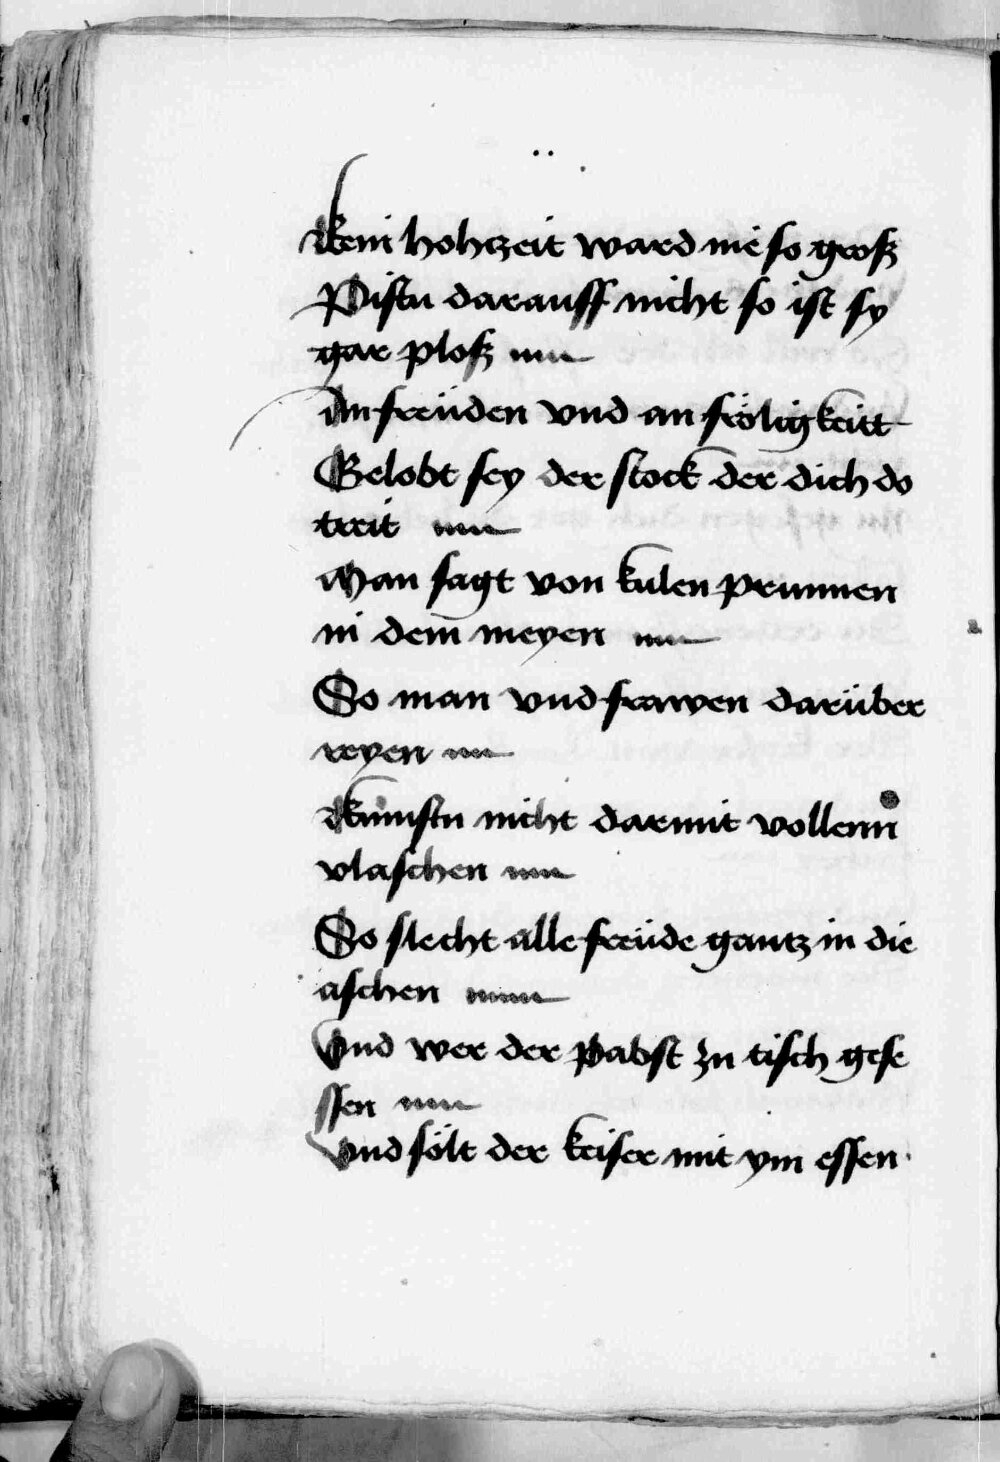 Kein hohczeit ward nie so groß
Pistu darauff nicht so ist sy
gar ploß
An freüden vnd an frölichkeitt
Gelobt sey der stock der dich do
treit
Man sagt von kulen prunnen
in dem meyen
So man vnd frawen darüber
reyen
Kumstu nicht darmit vollenn
vlaschen
So slecht alle freüde gantz in die
aschen
Vnd wer der Pabst zu tisch gese
ssen
Vnd sölt der keiser mit ym essen